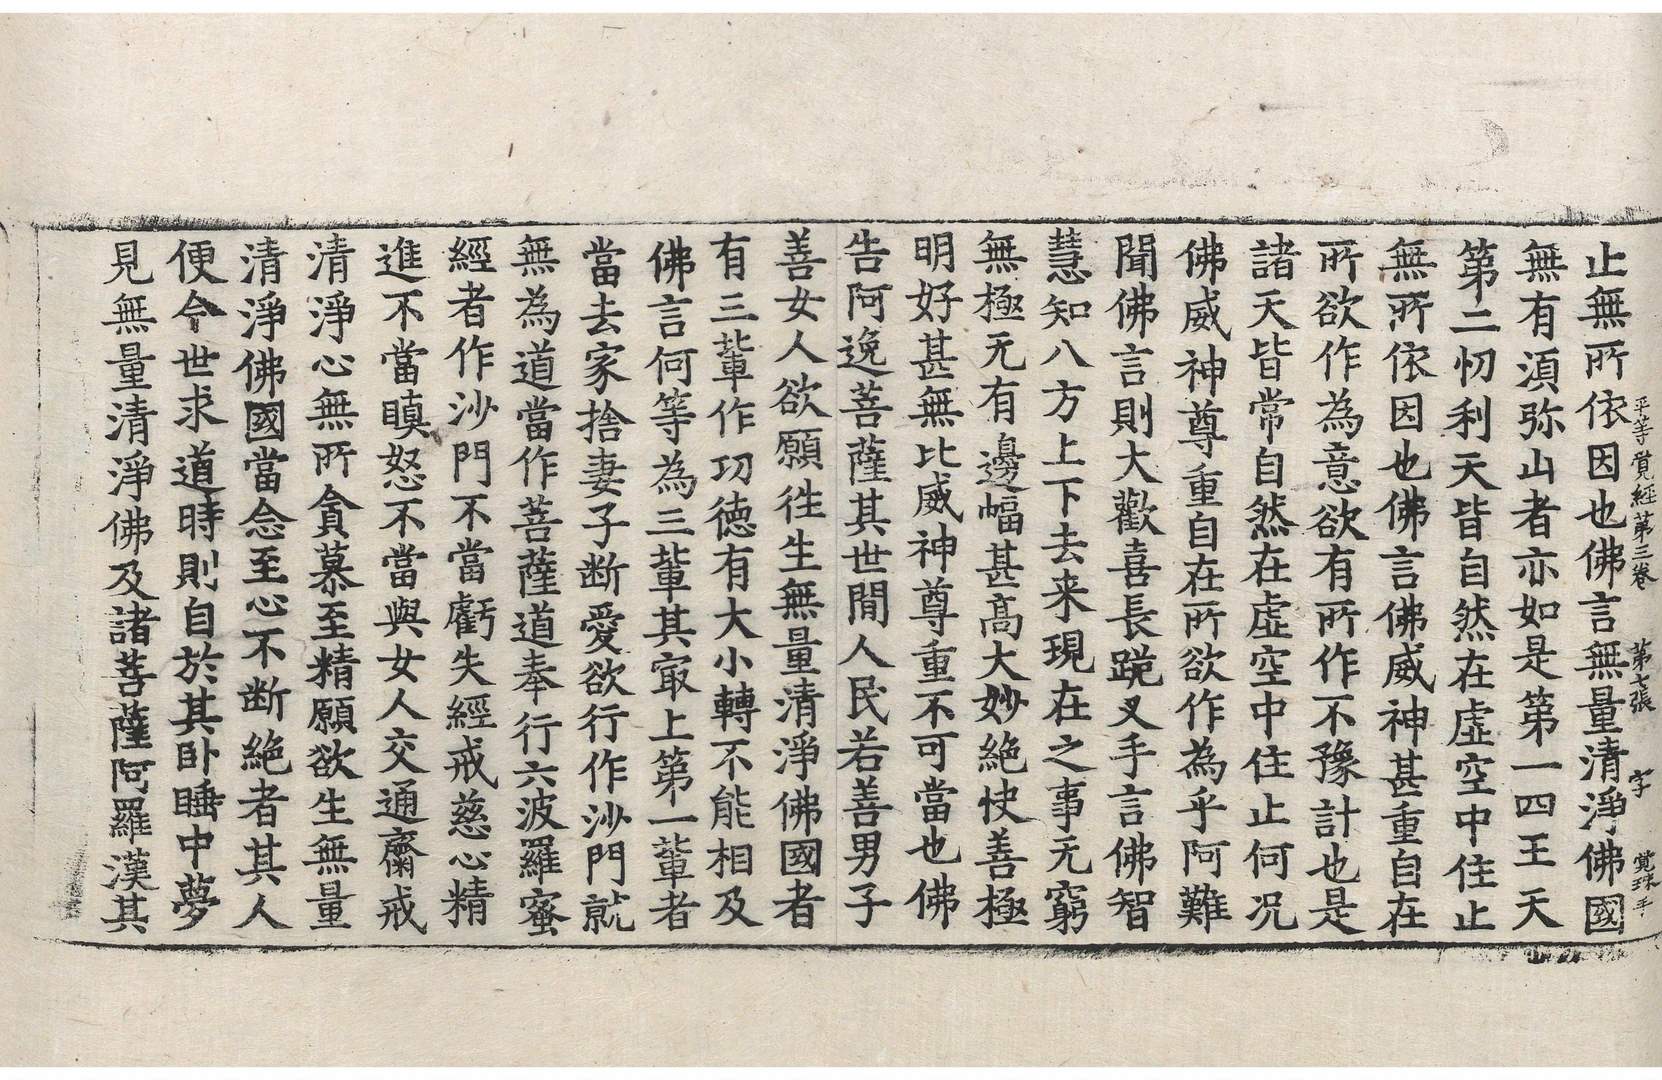 平等覺經第三卷 第七張 字 覺珠手
止無所依因也佛言無量清淨佛國
無有湏弥山者亦如是第一四王天
第二忉利天皆自然在虛空中住止
無所依因也佛言佛威神甚重自在
所欲作為意欲有所作不豫計也是
諸天皆常自然在虛空中住止何况
佛威神尊重自在所欲作為乎阿難
聞佛言則大歡喜長跪叉手言佛智
慧知八方上下去来現在之事无窮
無極无有邊幅甚髙大妙絶快善極
明好甚無比威神尊重不可當也佛
告阿逸菩薩其世閒人民若善男子
善女人欲願徃生無量清淨佛國者
有三軰作功德有大小轉不能相及
佛言何等為三軰其㝡上第一軰者
當去家捨妻子断愛欲行作沙門就
無為道當作菩薩道奉行六波羅蜜
經者作沙門不當虧失經戒慈心精
進不當瞋怒不當與女人交通齋戒
清淨心無所貪慕至精願欲生無量
清淨佛國當念至心不断絶者其人
便今世求道時則自於其卧睡中夢
見無量清淨佛及諸菩薩阿羅漢其